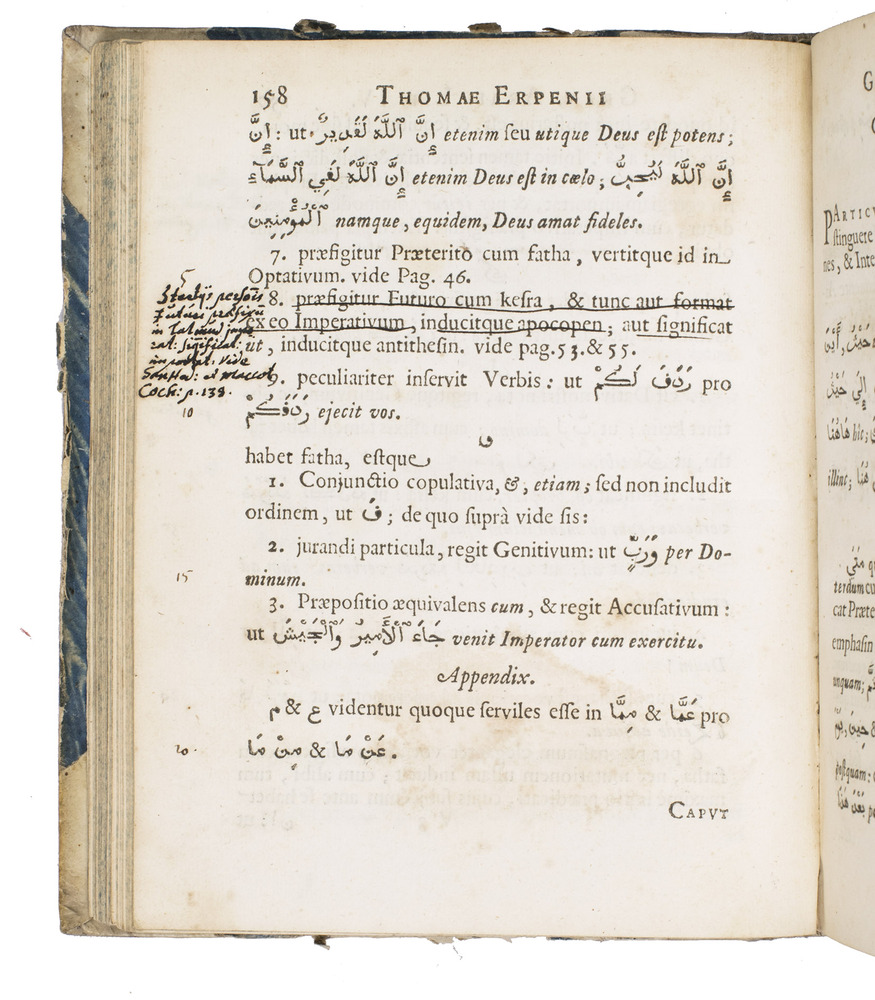 158 THOMAE ERPENII
إِنَّ : ut إِنَّ ٱللَّهَ لَقَدِيرٌ etenim ſeu utique Deus eſt potens;
إِنَّ ٱللَّهَ لَفِي ٱلسَّمَآءِ etenim Deus eſt in cœlo; إِنَّ ٱللَّهَ لَيُحِبُّ
ٱلْمُؤْمِنِينَ namque, equidem, Deus amat fideles.
7. præfigitur Præterito cum fatha, vertitque id in
Optativum. vide Pag. 46.
8. præfigitur Futuro cum keſra, & tunc aut format
ex eo Imperativum, inducitque apocopen; aut ſignificat
ut, inducitque antitheſin. vide pag. 53. & 55.
9. peculiariter inſervit Verbis: ut رَدَفَ لَكُمْ pro
رَدَفَكُمْ ejecit vos.
و
habet fatha, eſtque
1. Conjunctio copulativa, &, etiam; ſed non includit
ordinem, ut فَ; de quo ſuprà vide ſis:
2. jurandi particula, regit Genitivum: ut وَرَبٍّ per Do-
minum.
3. Præpoſitio æquivalens cum, & regit Accuſativum:
ut جَاءَ ٱلْأَمِيرُ وَٱلْجَيْشَ venit Imperator cum exercitu.
Appendix.
م & ع videntur quoque ſerviles eſſe in مِمَّا & عَمَّا pro
مِنْ مَا & عَنْ مَا.
CAPVT
5
vide
Coch: p. 138.
10
15
20.